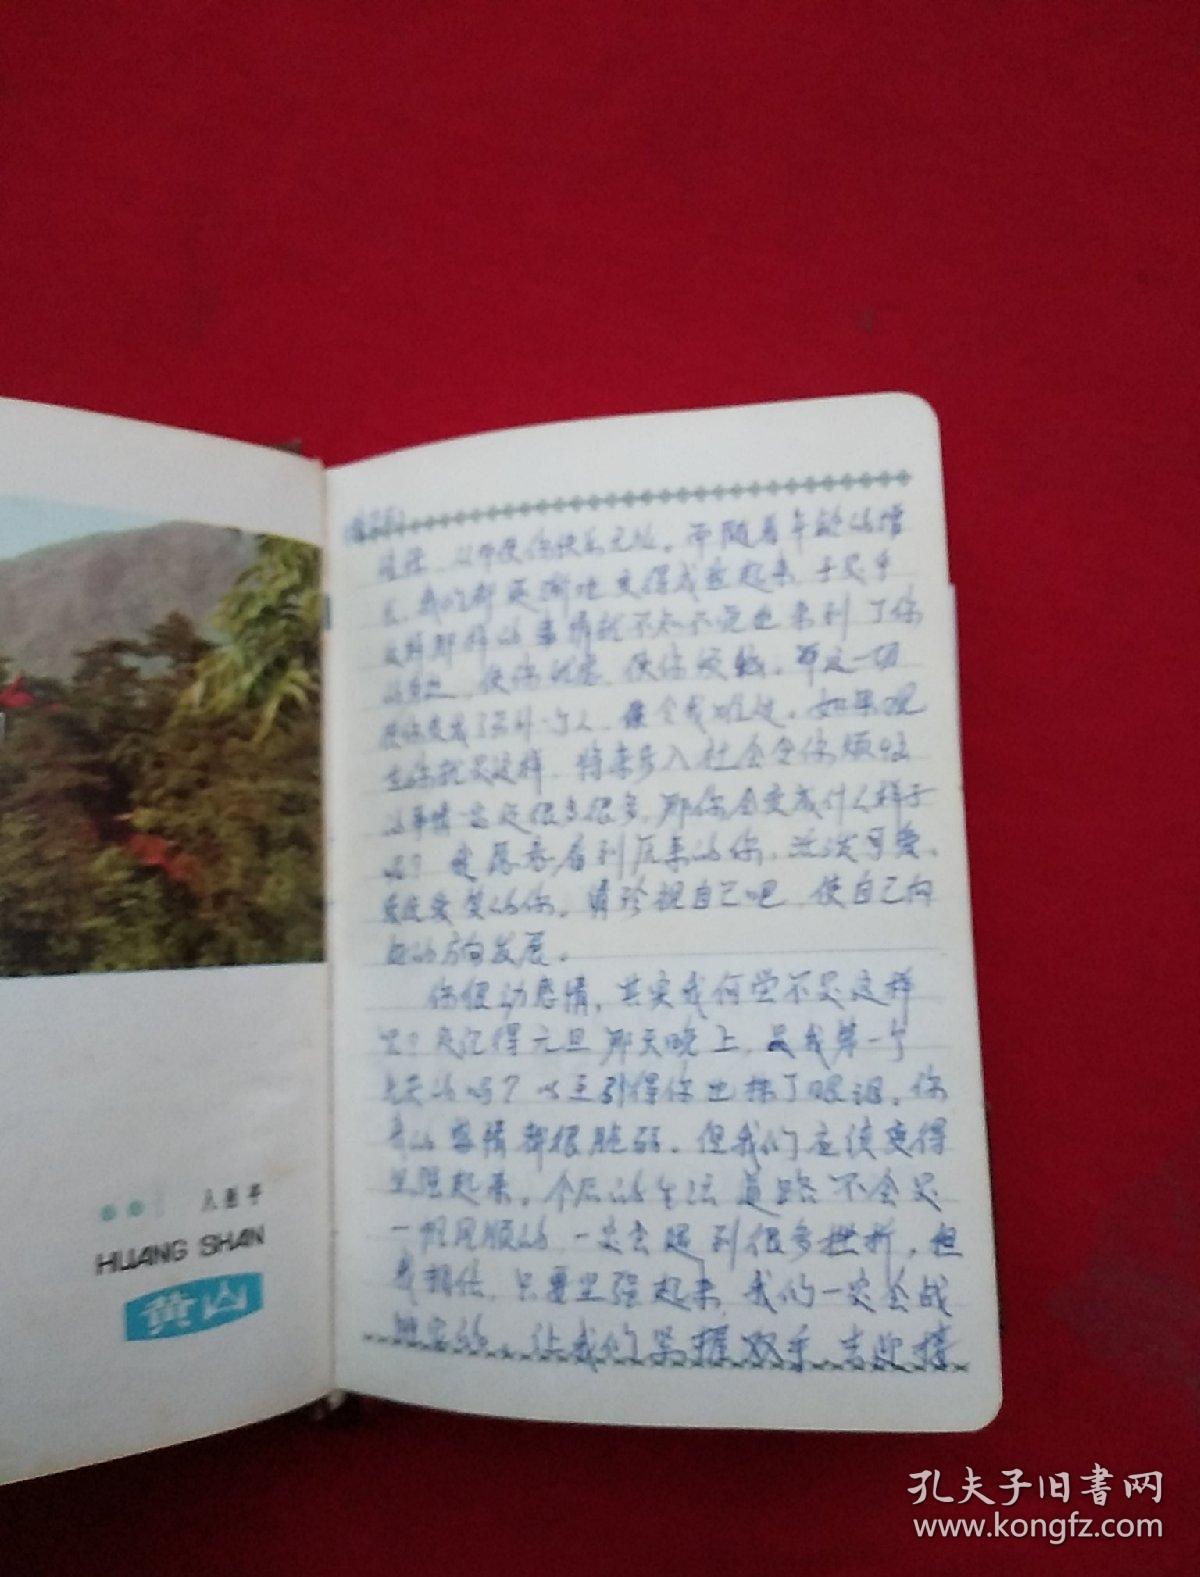 以而使你快乐无比。而随着年龄的增
长，我们都逐渐地变得成熟起来，于是乎
这样那样的事情就不知不觉也来到了你
的身边，使你忧愁，使你烦恼，而这一切
使你变成了另外一个人，最令我难过。如果现
在你就是这样，将来步入社会令你烦恼
的事情一定还很多很多，那你会变成什么样子
呢？我愿意看到原来的你，活泼可爱、
爱笑的你。请珍视自己吧，使自己向
好的方向发展。
你很动感情，其实我何尝不是这样
呢？是记得元旦那天晚上，是我第一个
哭的吗？以至引得你也抹了眼泪。你
我的感情都很脆弱。但我们应该变得
坚强起来，今后的生活道路不会是
一帆风顺的，一定会遇到很多挫折，但
我相信，只要坚强起来，我们一定会战
胜它的。让我们紧握双手去迎接
人民画
HUANG SHAN
黄山
孔夫子旧书网
www.kongfz.com